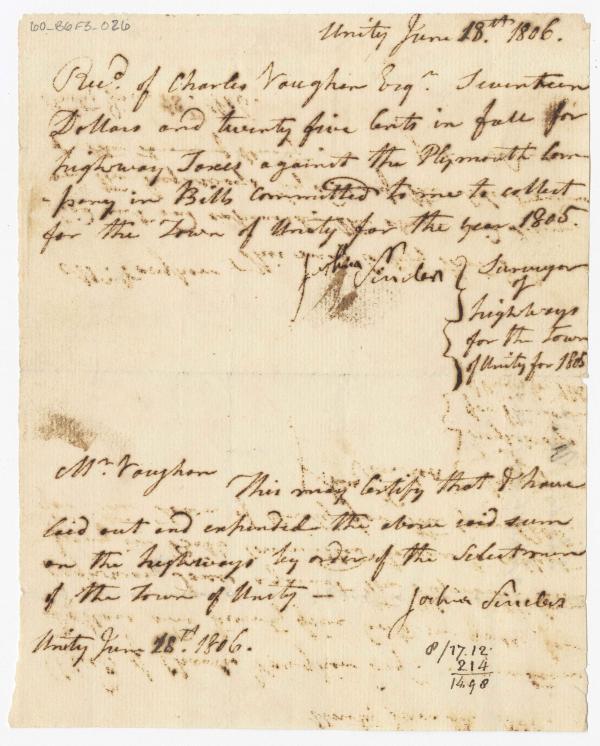 60-86F3-026
Unity June 28.th 1806.
Recd. of Charles Vaughan Esqr. Seventeen
Dollars and twenty five Cents in full for
highway Taxes against the Plymouth Com
-pany in Bills Committed to me to collect
for the Town of Unity for the year 1805.
Joshua Sincler
Surveyor
of
highways
for the Town
of Unity for 1805
Mr. Vaughan
This may Certify that I have
laid out and expended the above said sum
on the highways by order of the Selectmen
of the Town of Unity —
Joshua Sincler
Unity June 28.th 1806.
8/17.12
214
14.98